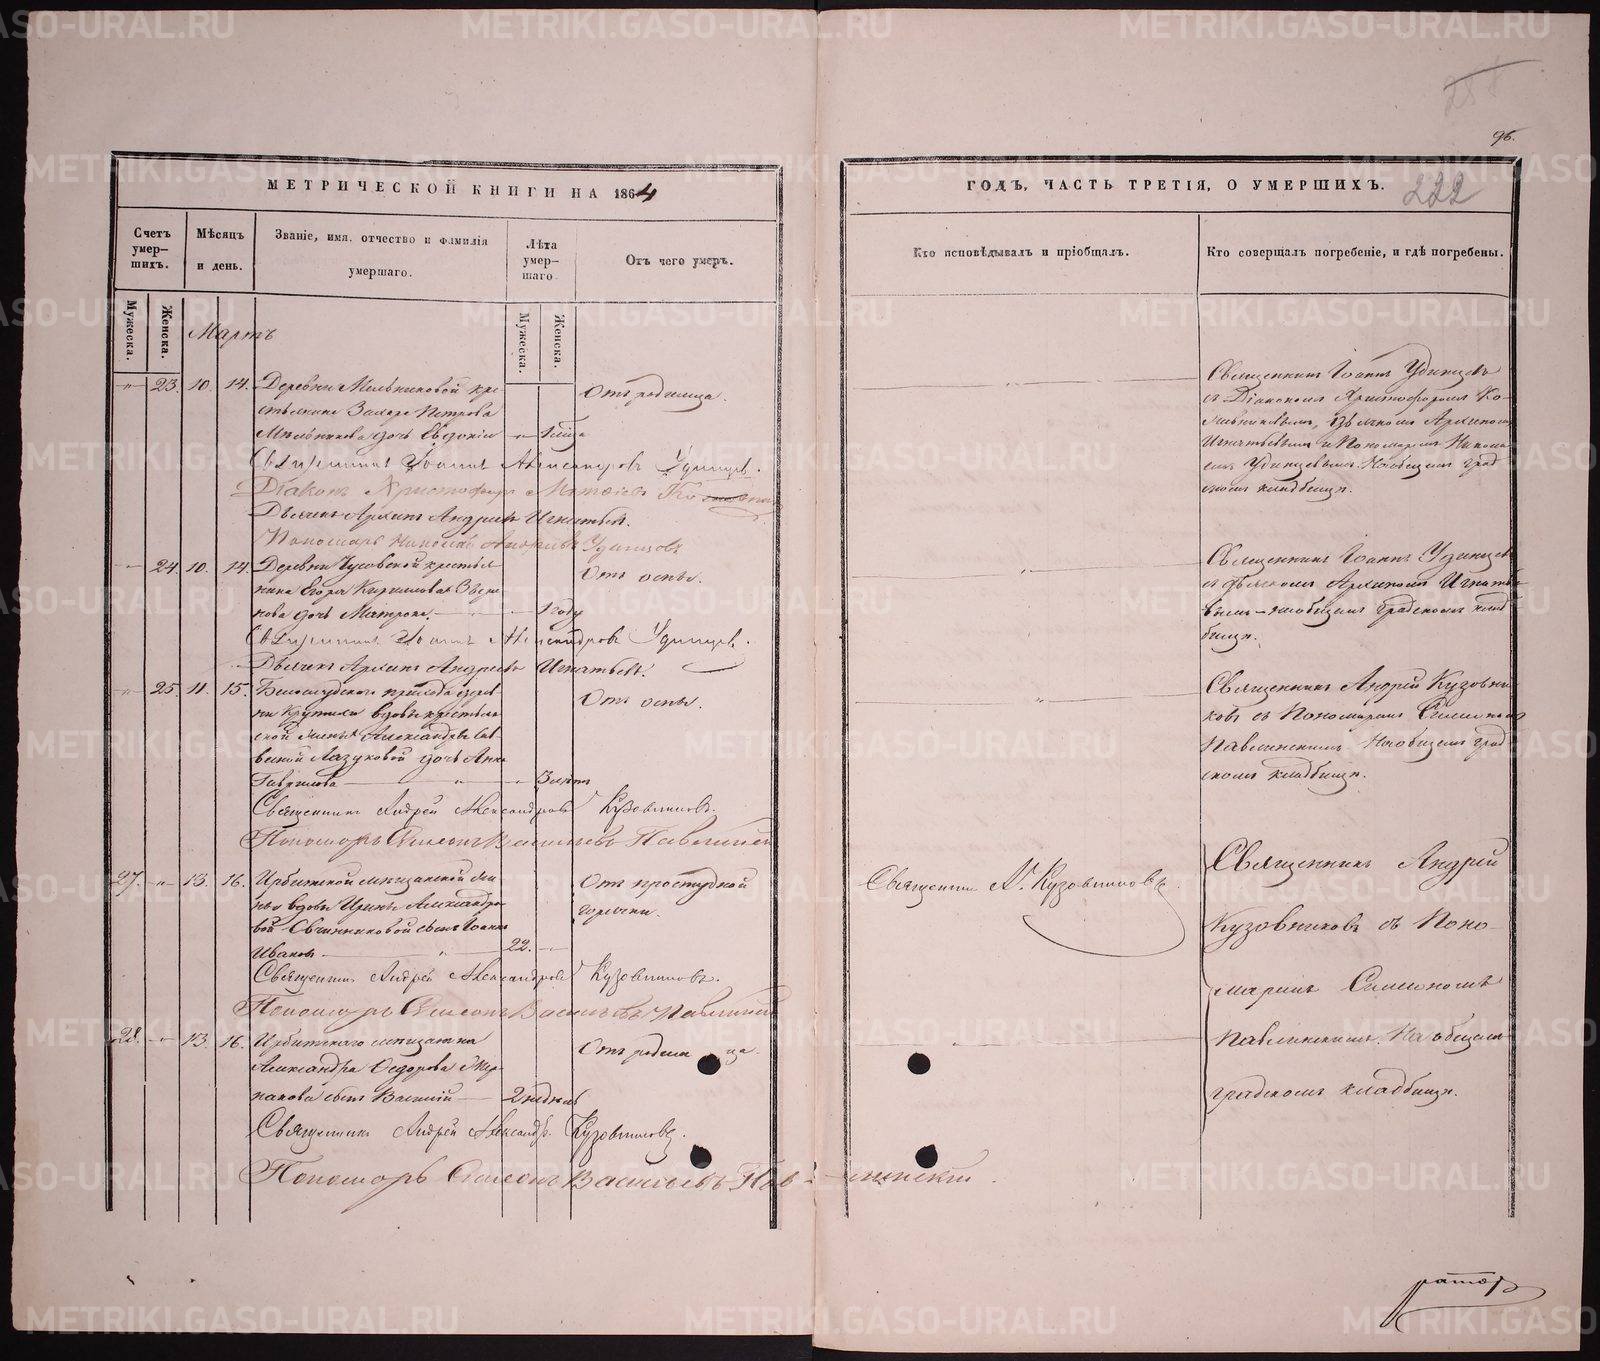 96.
МЕТРИЧЕСКОЙ КНИГИ НА 1864
ГОДЪ, ЧАСТЬ ТРЕТІЯ, О УМЕРШИХЪ.
222
Счетъ умер-шихъ.
Мѣсяцъ и день.
Званіе, имя, отчество и фамилія умершаго.
Лѣта умер-шаго.
Отъ чего умеръ.
Кто исповѣдывалъ и пріобщалъ.
Кто совершалъ погребеніе, и гдѣ погребены.
Мужеска.
Женска.
Мужеска.
Женска.
Мартъ
23. 10. 14. Деревни Мельниковой кре-
стьянина Захара Петрова
Мельникова дочь Евдокія
Отъ родимца.
Священникъ Іоаннъ Александровъ Удинцевъ.
Діаконъ Христофоръ Матвѣевъ
Дьячекъ Архипъ Андреевъ Игнатьевъ.
Пономарь Николай Андреевъ Удинцовъ
Священникъ Іоаннъ Удинцевъ
съ Діакономъ Христофоромъ Ко-
дьячкомъ Архипомъ
Игнатьевымъ и Пономаремъ Никола-
емъ Удинцевымъ На общемъ град-
скомъ кладбищѣ.
24. 10. 14. Деревни Чусовской крестья-
нина Егора Кириллова
дочь Матрона
1 году
Отъ оспы.
Священникъ Іоаннъ Александровъ Удинцев.
Дьячекъ Архипъ Андреевъ Игнатьевъ.
Священникъ Іоаннъ Удинцевъ
съ дьячкомъ Архипомъ Игнатье-
вымъ на общемъ градскомъ клад-
бищѣ.
25. 11. 15. Белослудского прихода дерев-
ни вдовы крестьян-
ской жены Александры Сав-
виной Лазуковой дочь Анна
Гаврилова
3 лѣтъ
Отъ оспы.
Священникъ Андрей Александровъ Кузовниковъ.
Пономарь Симеонъ Васильевъ Павлинскій
Священникъ Андрей Кузовни-
ковъ съ Пономаремъ Симеономъ
Павлинскимъ На общемъ град-
скомъ кладбищѣ.
27. 13. 16. Ирбитской мѣщанской же-
ны вдовы Ирины Александро-
вой Овчинниковой сынъ Іоаннъ
Ивановъ
22.
Отъ простудной
горячки.
Священникъ А. Кузовниковъ.
Священникъ Андрей Александровъ Кузовниковъ.
Пономарь Симеонъ Васильевъ Павлинскій
28. 13. 16. Ирбитскаго мѣщанина
Александра Федорова
сынъ Василій
2 недѣль
Отъ родимца.
Священникъ Андрей Александр. Кузовниковъ.
Пономарь Симеонъ Васильевъ Павлинскій.
Священникъ Андрей
Кузовниковъ съ Поно-
маремъ Симеономъ
Павлинскимъ На общемъ
градскомъ кладбищѣ.
METRIKI.GASO-URAL.RU